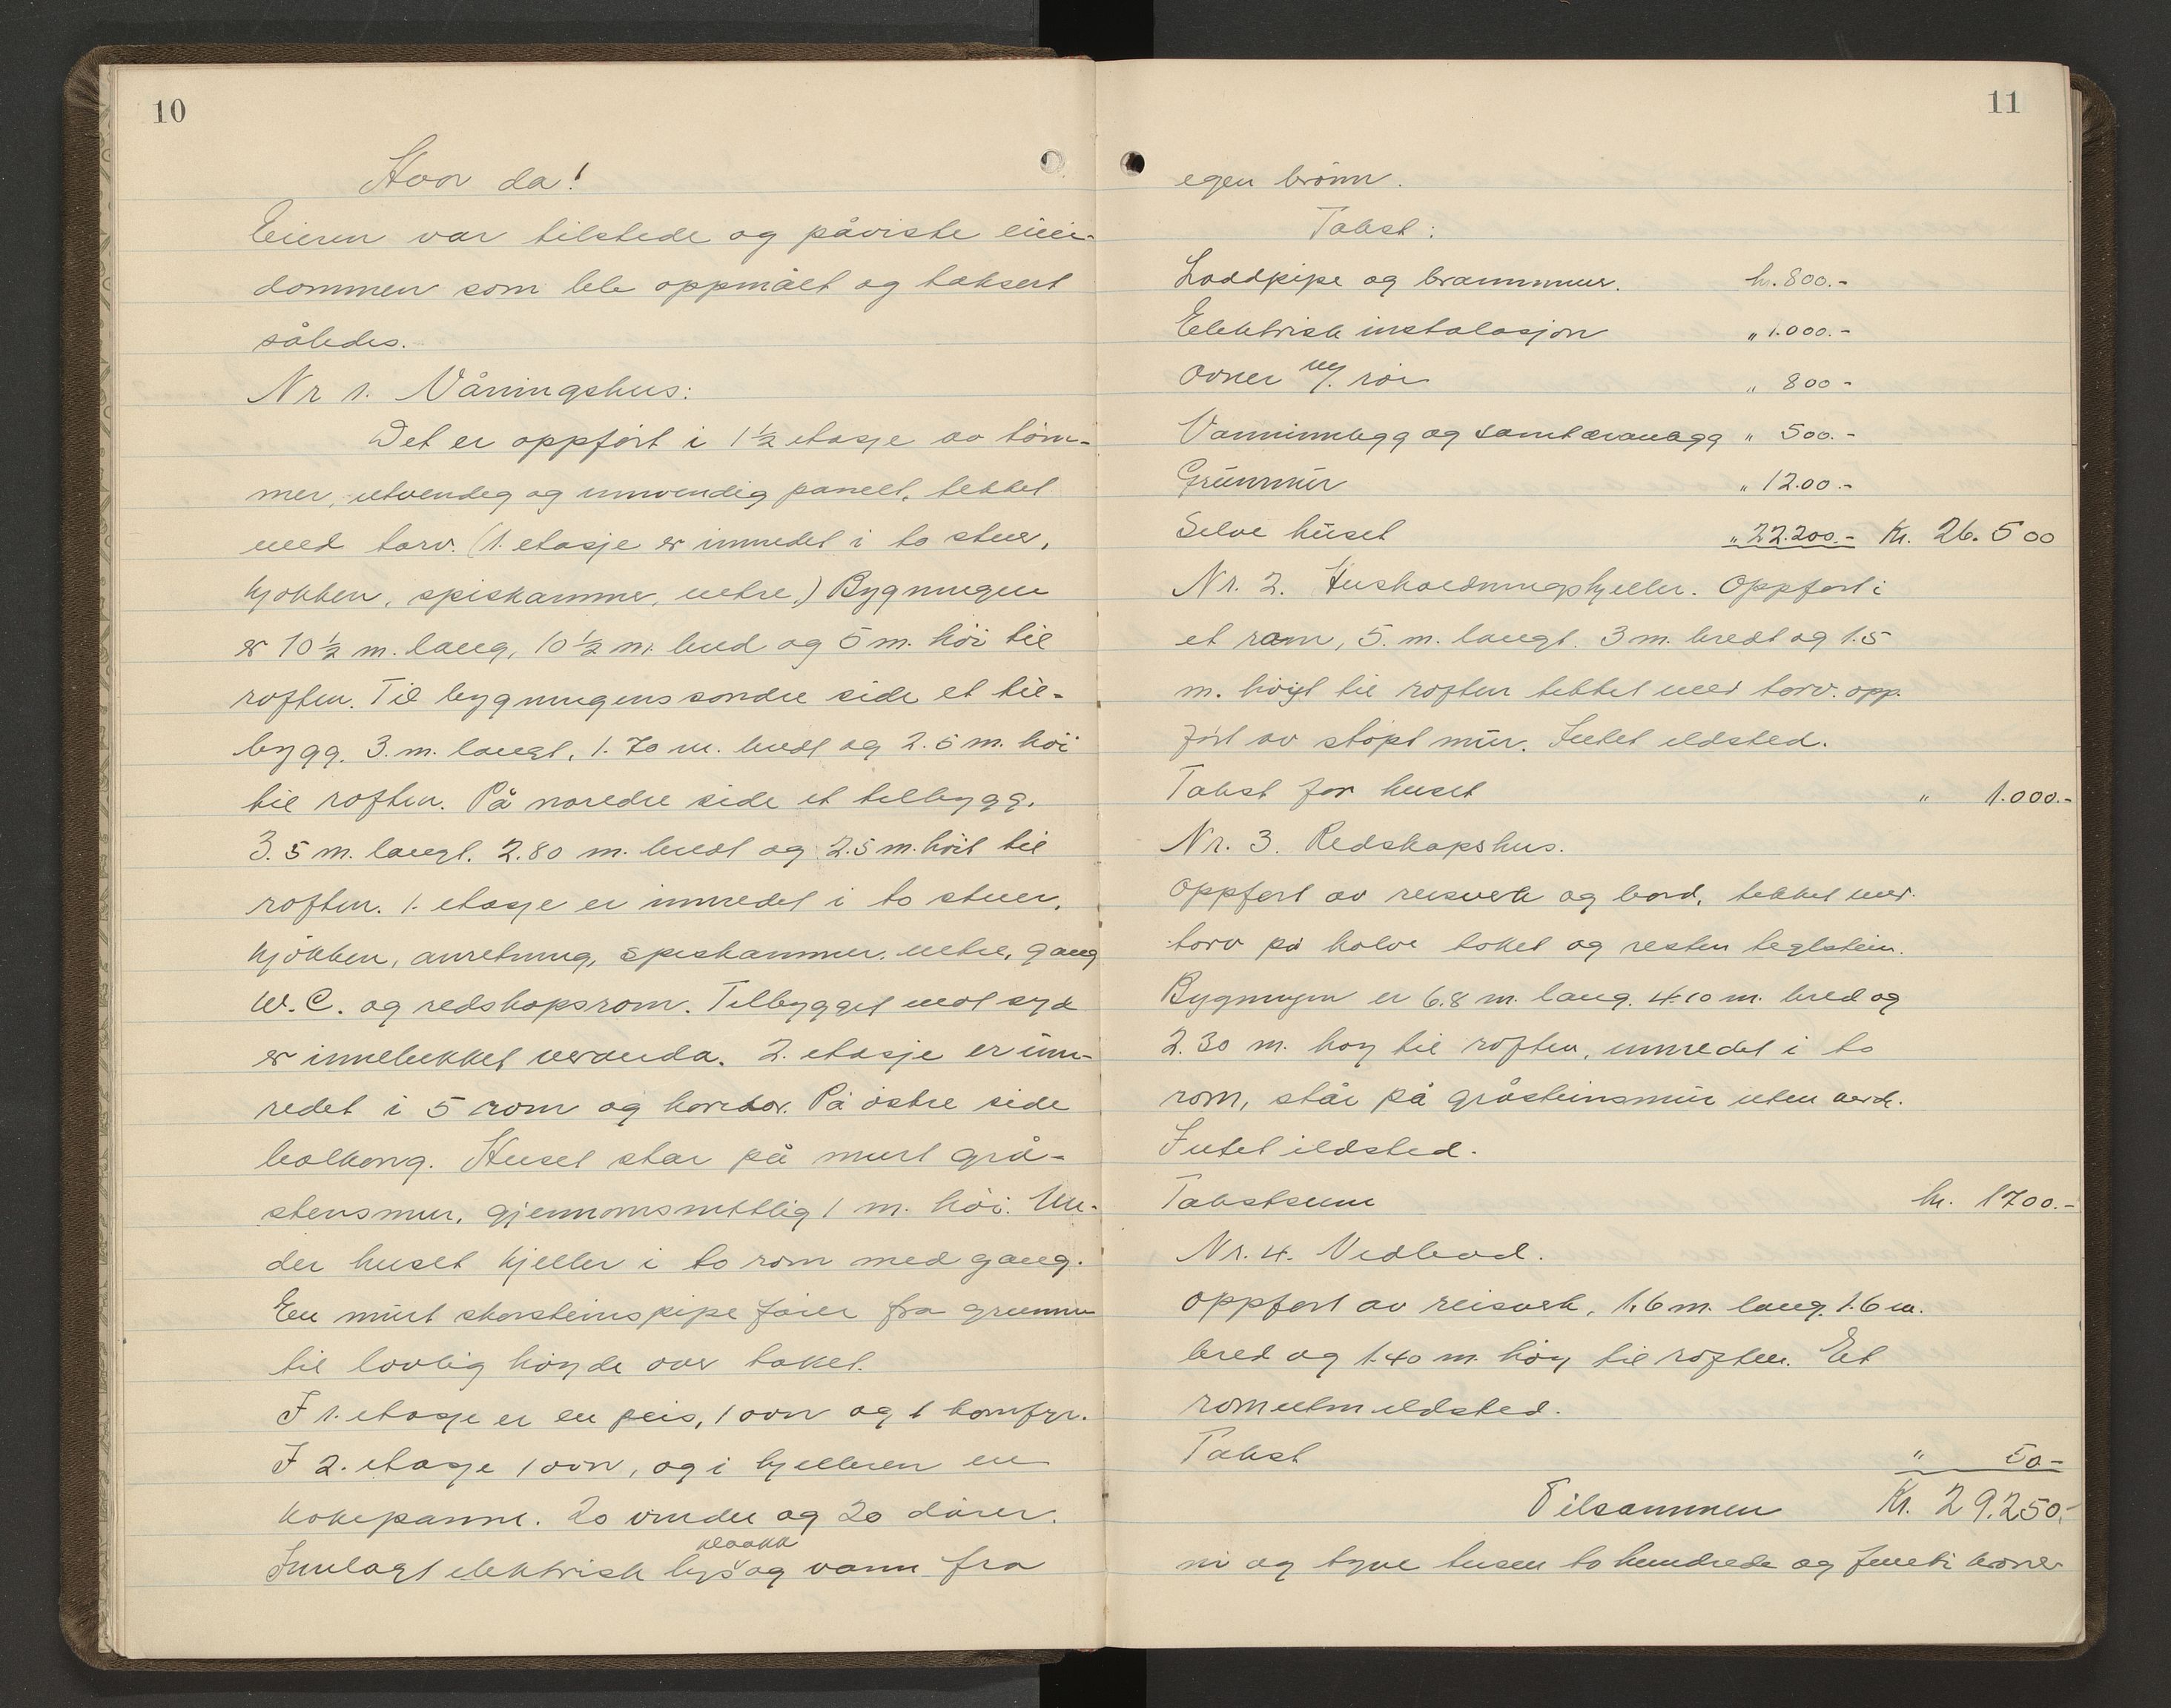 10
Hvor da!
Eieren var tilstede og påviste eien-
dommen som ble oppmålt og taksert
således.
Nr 1. Våningshus:
Det er oppfört i 1½ etasje av töm-
mer, utvendig og innvendig panelt, tekket
med torv. (1. etasje er innredet i to stuer,
kjøkken, spiskammer, entre,) Bygningen
er 10½ m. lang, 10½ m. bred og 5 m. höi til
roften. Til bygningens söndre side et til-
bygg. 3. m. langt, 1.70 m. bredt og 2.5 m. höi
til roften. På nordre side et tilbygg.
3.5 m. langt. 2.80 m. bredt og 2.5 m. höit til
roften. 1. etasje er innredet i to stuer,
kjökken, anretning, spiskammer, entre, gang
W.C. og redskapsrom. Tilbygget mot syd
er innelukket veranda. 2. etasje er inn-
redet i 5 rom og korridor. På östre side
balkong. Huset står på murt grå-
stensmur, gjennomsnittlig 1 m. höi. Un-
der huset kjeller i to rom med gang.
En murt skorsteinspipe förer fra grunnen
til lovlig höyde over taket.
I 1. etasje er en peis, 1 ovn og 1 komfyr.
I 2. etasje 1 ovn, og i kjelleren en
kokepanne. 20 vinduer og 20 dörer.
kloakk
Innlagt elektrisk lys og vann fra
11
egen brönn.
Takst:
Loddpipe og brannmur. kr. 800.-
Elektrisk instalasjon " 1.000.-
Ovner m/. rör " 800 -
Vanninnlegg og sanitæranlegg " 500.-
Grunnmur " 12.00.-
Selve huset " 22.200.- Kr. 26.500
Nr. 2. Husholdningskjeller. Oppfört i
et rom, 5. m. langt. 3 m. bredt og 1.5
m. höyt til roften tekket med torv. opp-
fört av stöpt mur. Intet ildsted.
Takst for huset " 1.000.-
Nr. 3. Redskapshus.
Oppfört av reisverk og bord, tekket med
torv på halve taket og resten teglstein.
Bygningen er 6.8 m. lang. 4.10 m. bred og
2.30 m. höy til roften, innredet i to
rom, står på gråsteinsmur uten verdi.
Intet ildsted.
Takstsum kr. 1700.-
Nr. 4. Vedbod.
Oppfört av reisverk, 1.6 m. lang. 1.6 m.
bred og 1.40 m. höy til roften. Et
rom uten ildsted.
Takst " 50-
Tilsammen Kr. 29.250.-
ni og tyve tusen to hundrede og femti kroner